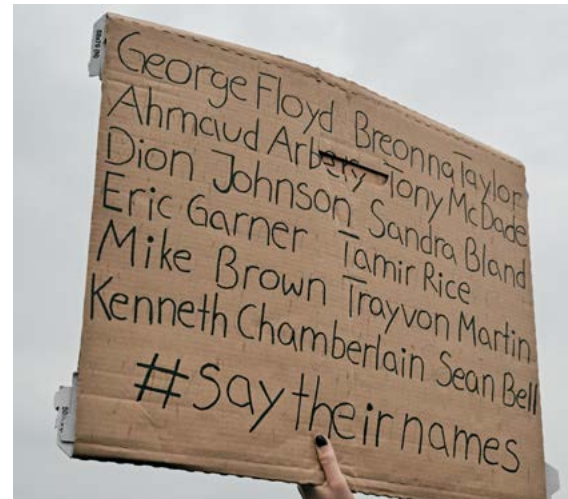 George Floyd Breonna Taylor
Ahmaud Arbery Tony McDade
Dion Johnson Sandra Bland
Eric Garner Tamir Rice
Mike Brown Trayvon Martin
Kenneth Chamberlain Sean Bell
#saytheirnames